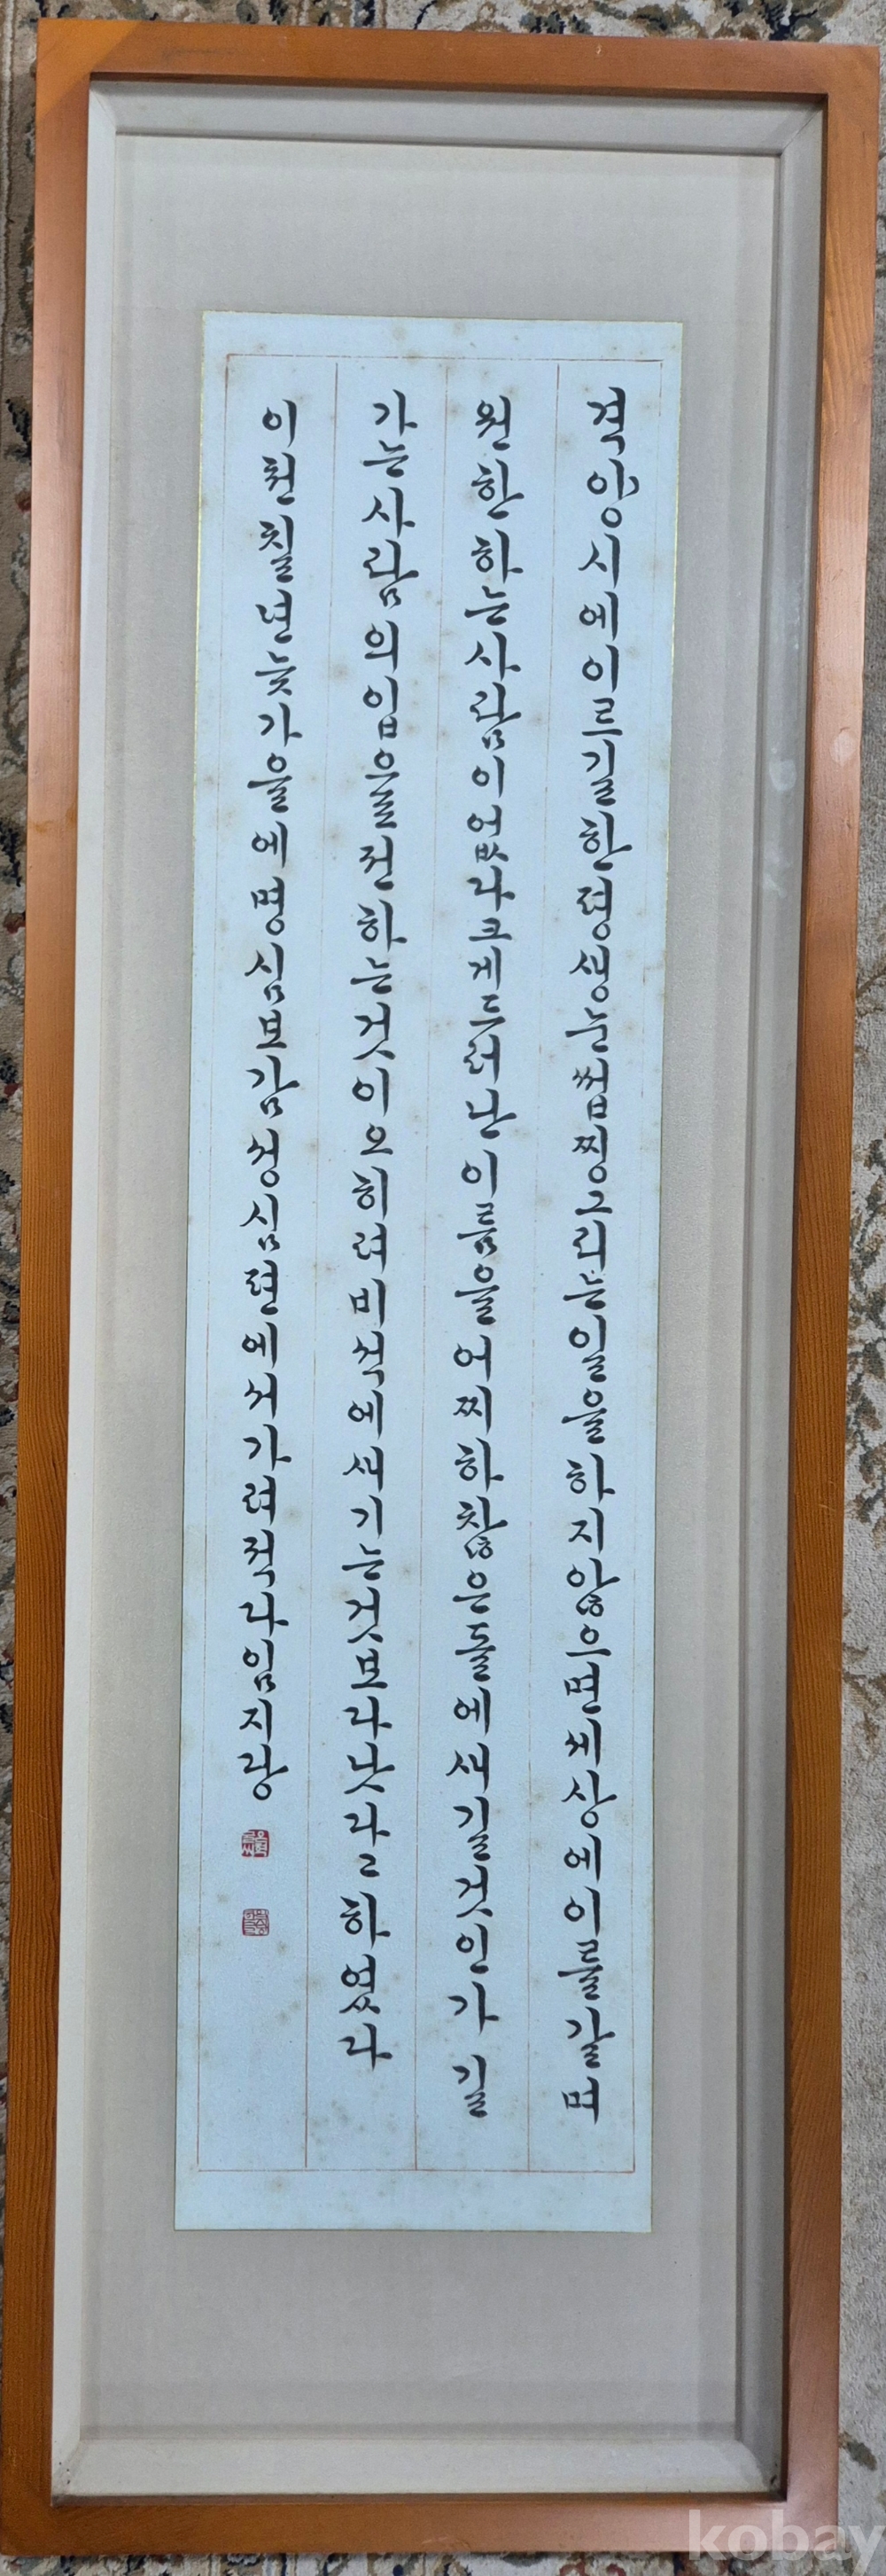 격양시에이르길한평생눈썹찡그리는일을하지않으면세상에이를갈며
원한하는사람이없다크게드러난이름을어찌하찮은돌에새길것인가길
가는사람의입을전하는것이오히려비석에새기는것보다낫다고하였다
이천칠년늦가을에명심보감성심편에서가려적다임지랑
kobay